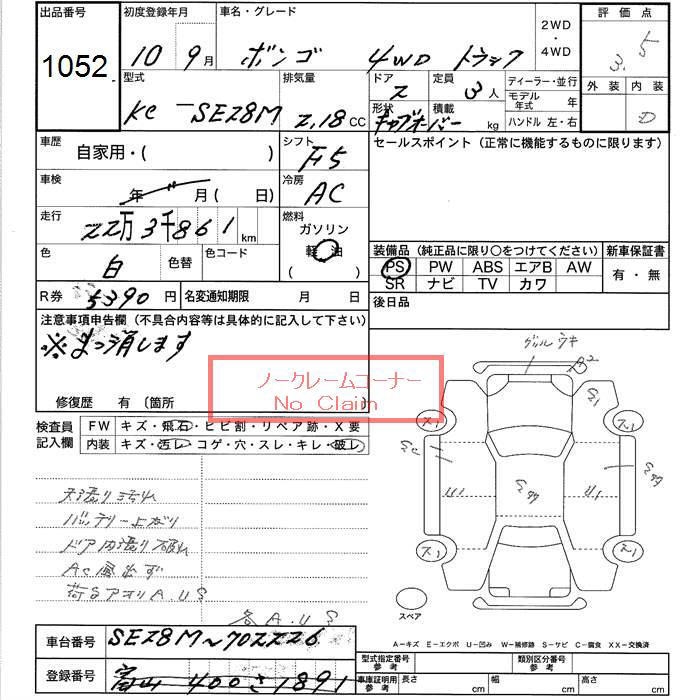 出品番号
1052
初度登録年月
10 9月
車名・グレード
ボンゴ 4WD トラック
2WD
・
4WD
評価点
3.5
外装 内装
D
型式
KC-SE28M
排気量
2,18 CC
ドア
2
定員
3人
形状
キャブオーバー
積載
kg
ディーラー・並行
モデル年式 年
ハンドル 左・右
車歴
自家用・( )
シフト
F5
セールスポイント（正常に機能するものに限ります）
車検
年 月 ( 日)
冷房
AC
走行
22万3千861km
燃料
ガソリン
軽油
( )
色
白
色替
色コード
装備品（純正品に限り○をつけてください）
新車保証書
PS PW ABS エアB AW
SR ナビ TV カワ
有・無
R券
5390円
名変通知期限 月 日
後日品
注意事項申告欄（不具合内容等は具体的に記入して下さい）
※まっ消します
ノークレームコーナー
No Claim
修復歴 有 (箇所 )
検査員記入欄
FW キズ・飛石・ヒビ割・リペア跡・X要
内装 キズ・汚レ・コゲ・穴・スレ・キレ・破レ
天張り汚れ
バッテリー上がり
ドア内張り破れ
AC風出ず
荷台アオリA.U.S
各A.U.S
グリルウキ
スペア
A－キズ E－エクボ U－凹み W－補修跡 S－サビ C－腐食 XX－交換済
車台番号
SE28M～702226
登録番号
富山 400 さ 1891
型式指定番号
参考
類別区分番号
参考
車庫証明用
参考
長さ cm
幅 cm
高さ cm